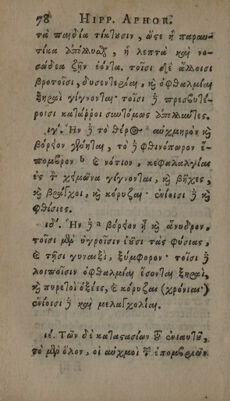 78 HIPP. APHOR.
τὰ παιδία τίκτυσιν, ὥςε ἢ παραυ-
τίκα ἀπόλλυσθαι, ἢ λεπτὰ καὶ νο-
σώδεα ζῆν ἐόντα. τοῖσι δὲ ἄλλοισι
βροτοῖσι, δυσεντερίαι, καὶ ὀφθαλμίαι
ξηραὶ γίγνονται· τοῖσι ἢ πρεσβυτέ-
ροισι κατάρροι συντόμως ἀπολλύντες.
ιγʹ. Ἢν ἢ τὸ θέρος αὐχμηρὸν καὶ
βόρειον γένηται, τὸ ἢ φθινόπωρον ἔ-
πομβρον b καὶ νότιον, κεφαλαλγίαι
ἐς τ χειμῶνα γίγνονται, καὶ βῆχες,
καὶ βράγχοι, καὶ κόρυζαι· ἐνίοισι ἢ καὶ
φθίσιες.
ιδʹ. Ἢν ἢ a βόρειον ἢ καὶ ἄνυδρον,
τοῖσι μὲν ὑγροῖσιν ἐῦσι τὰς φύσιας,
καὶ τῇσι γυναιξὶ, ξύμφορον· τοῖσι ἢ
λοιποῖσιν ὀφθαλμίαι ἔσονται ξηραὶ,
καὶ πυρετοὶ ὀξέες, καὶ κόρυζαι (χρόνιαι·)
ἐνίοισι ἢ καὶ μελαγχολίαι.
ιε. Τῶν δὲ καταςασίων τ ἐνιαυτῦ,
τὸ μὲν ὅλον, οἱ αὐχμοὶ τ ἐπομβριῶν